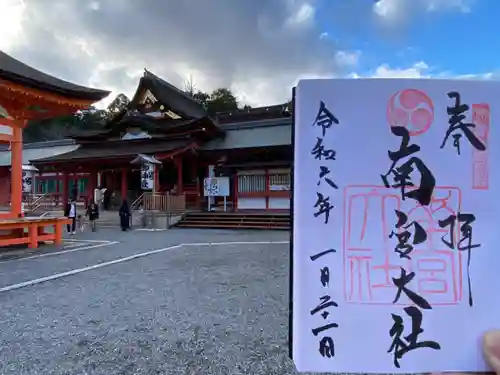 奉拝
南宮大社
令和六年
一月二十一日